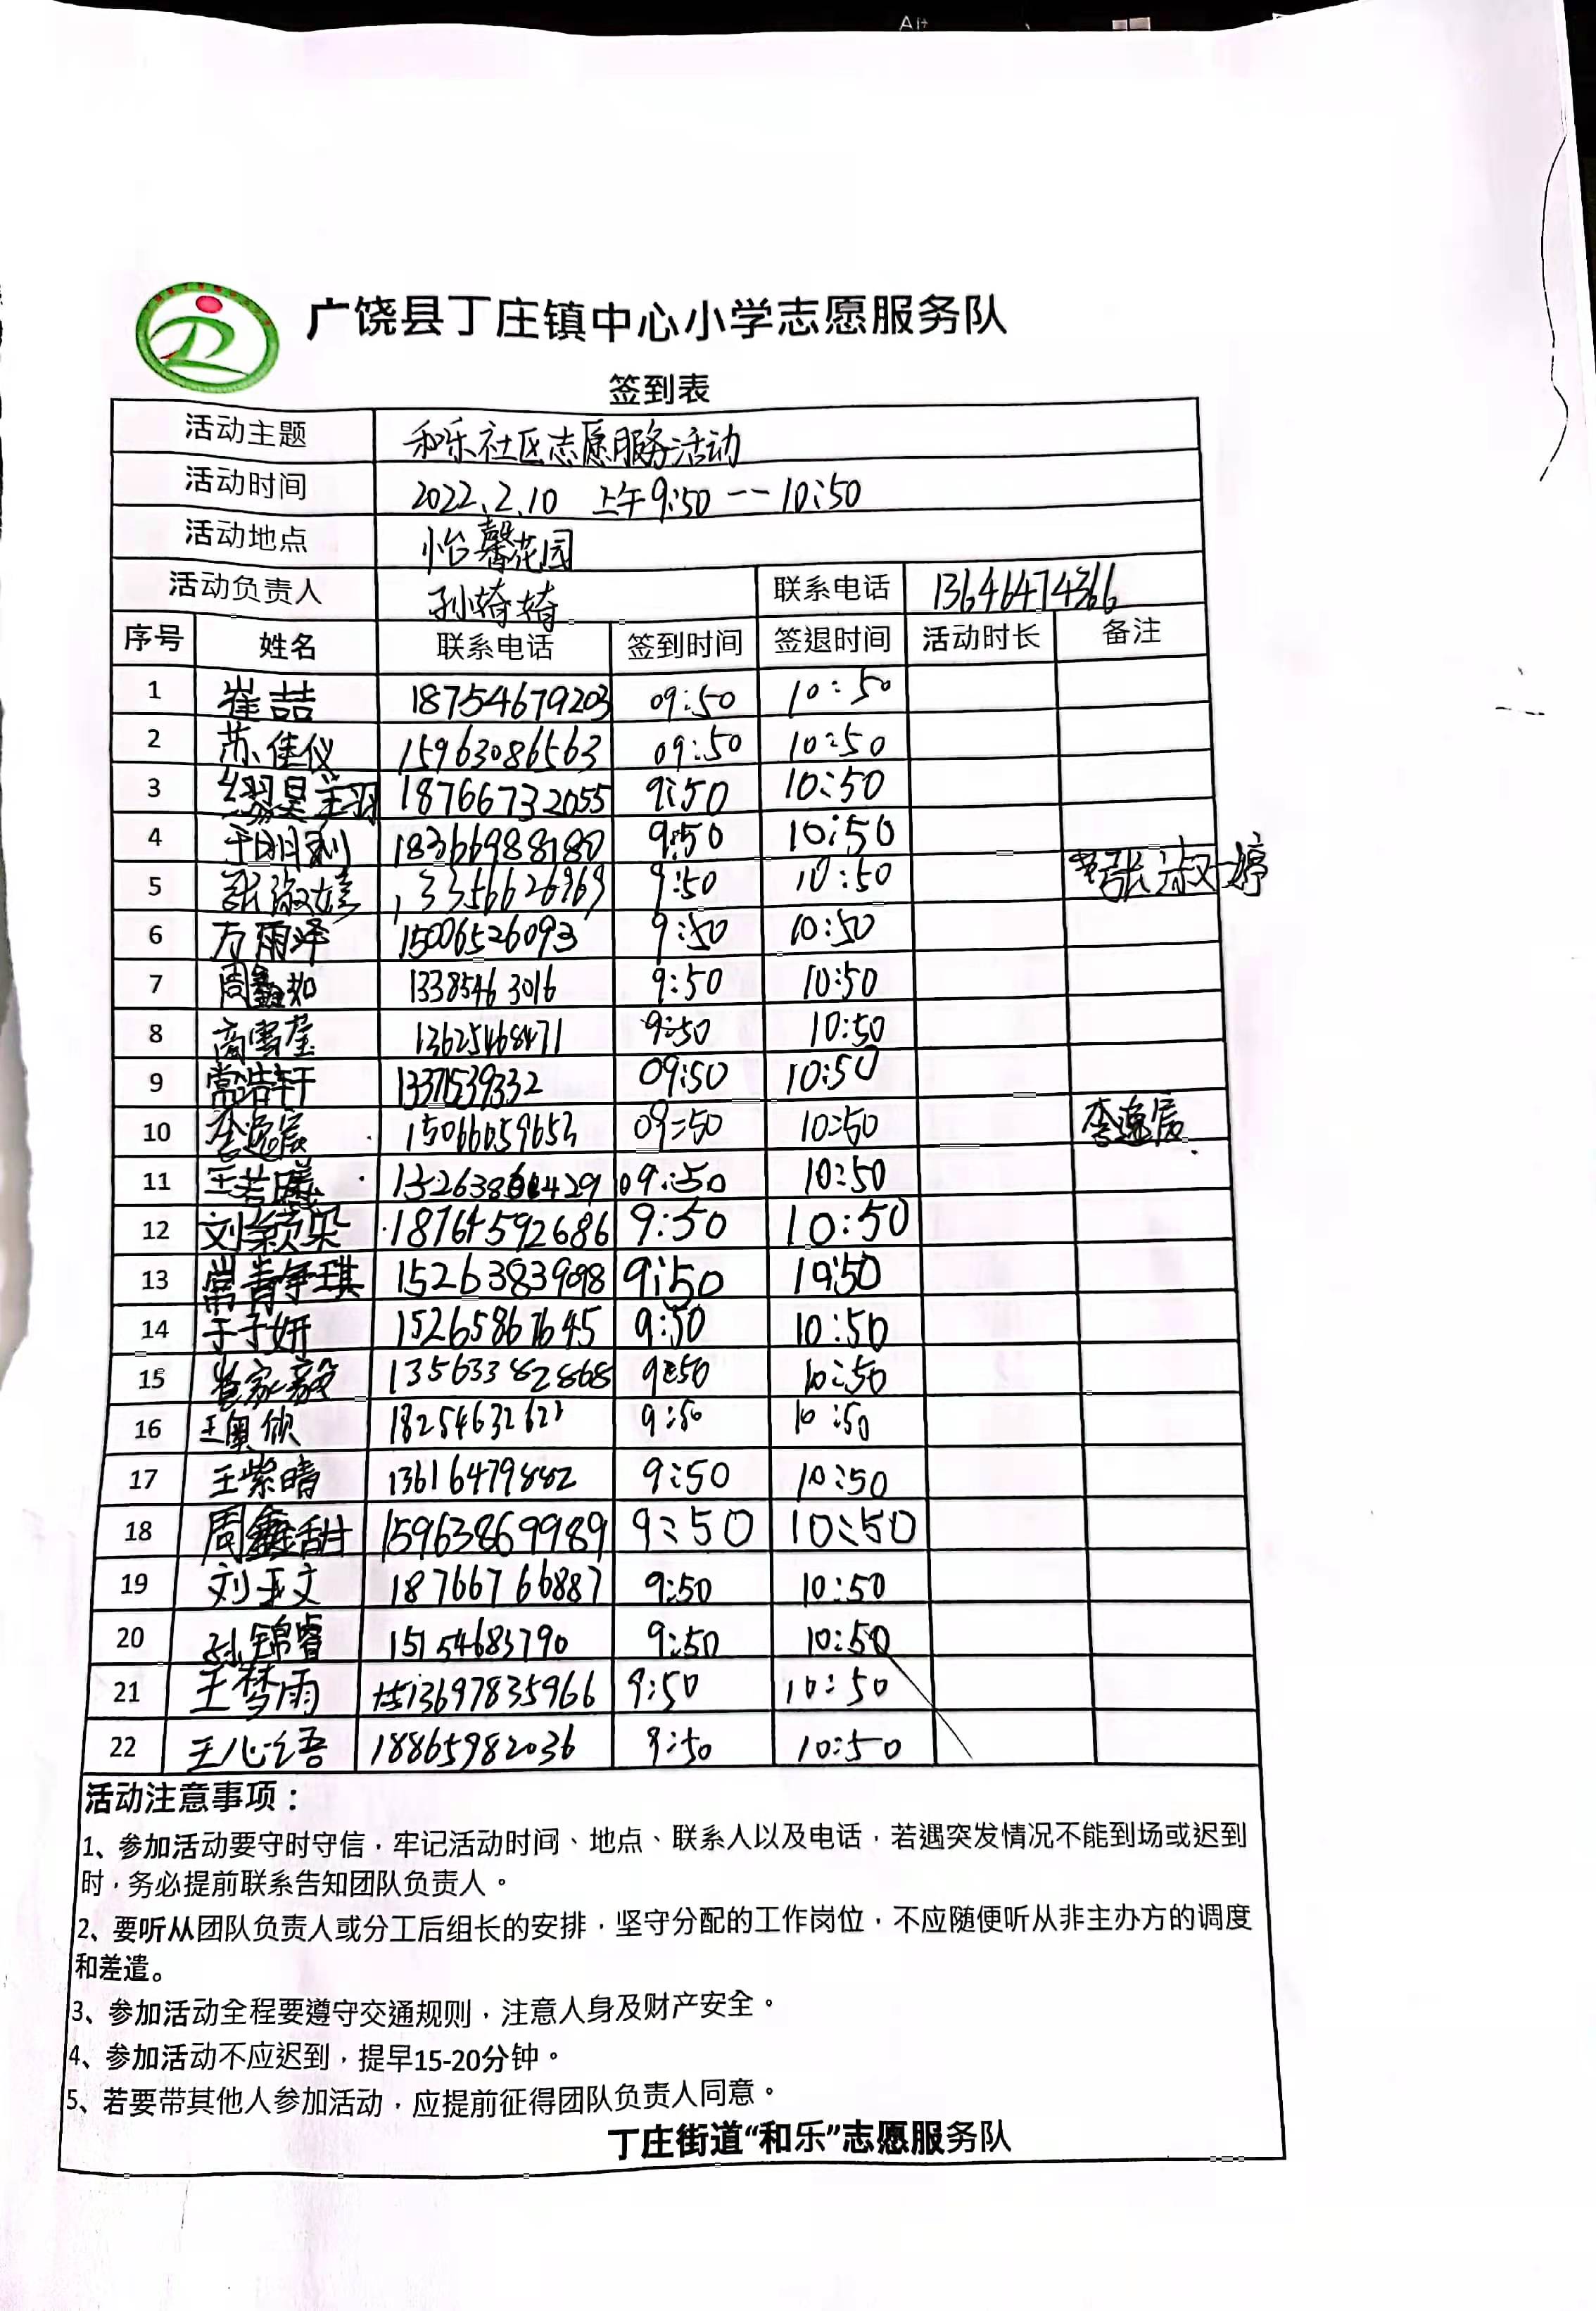 广饶县丁庄镇中心小学志愿服务队
签到表
活动主题 和乐社区志愿服务活动
活动时间 2022.2.10 上午9:50--10:50
活动地点 怡馨花园
活动负责人 孙婍婍 联系电话
序号 姓名 联系电话 签到时间 签退时间 活动时长 备注
1 崔喆 18754679203 09:50 10:50
2 苏佳仪 15963086563 09:50 10:50
3 18766732055 9:50 10:50
4 9:50 10:50
5 张淑婷 13356626969 9:50 10:50 张淑婷
6 方雨泽 15006526093 9:50 10:50
7 周鑫如 13385463016 9:50 10:50
8 13625468471 9:50 10:50
9 常浩轩 1337539332 09:50 10:50
10 李逸宸 15066059653 09:50 10:50 李逸宸
11 09:50 10:50
12 18764592686 9:50 10:50
13 9:50 10:50
14 于子妍 15265867645 9:50 10:50
15 崔家毅 13563382868 9:50 10:50
16 9:50 10:50
17 王紫晴 13616479882 9:50 10:50
18 周鑫甜 15963869989 9:50 10:50
19 刘玉文 18766766887 9:50 10:50
20 孙锦睿 15154683790 9:50 10:50
21 王梦雨 13697835966 9:50 10:50
22 王心语 18865982036 9:50 10:50
活动注意事项：
1、参加活动要守时守信，牢记活动时间、地点、联系人以及电话，若遇突发情况不能到场或迟到
时，务必提前联系告知团队负责人。
2、要听从团队负责人或分工后组长的安排，坚守分配的工作岗位，不应随便听从非主办方的调度
和差遣。
3、参加活动全程要遵守交通规则，注意人身及财产安全。
4、参加活动不应迟到，提早15-20分钟。
5、若要带其他人参加活动，应提前征得团队负责人同意。
丁庄街道“和乐”志愿服务队